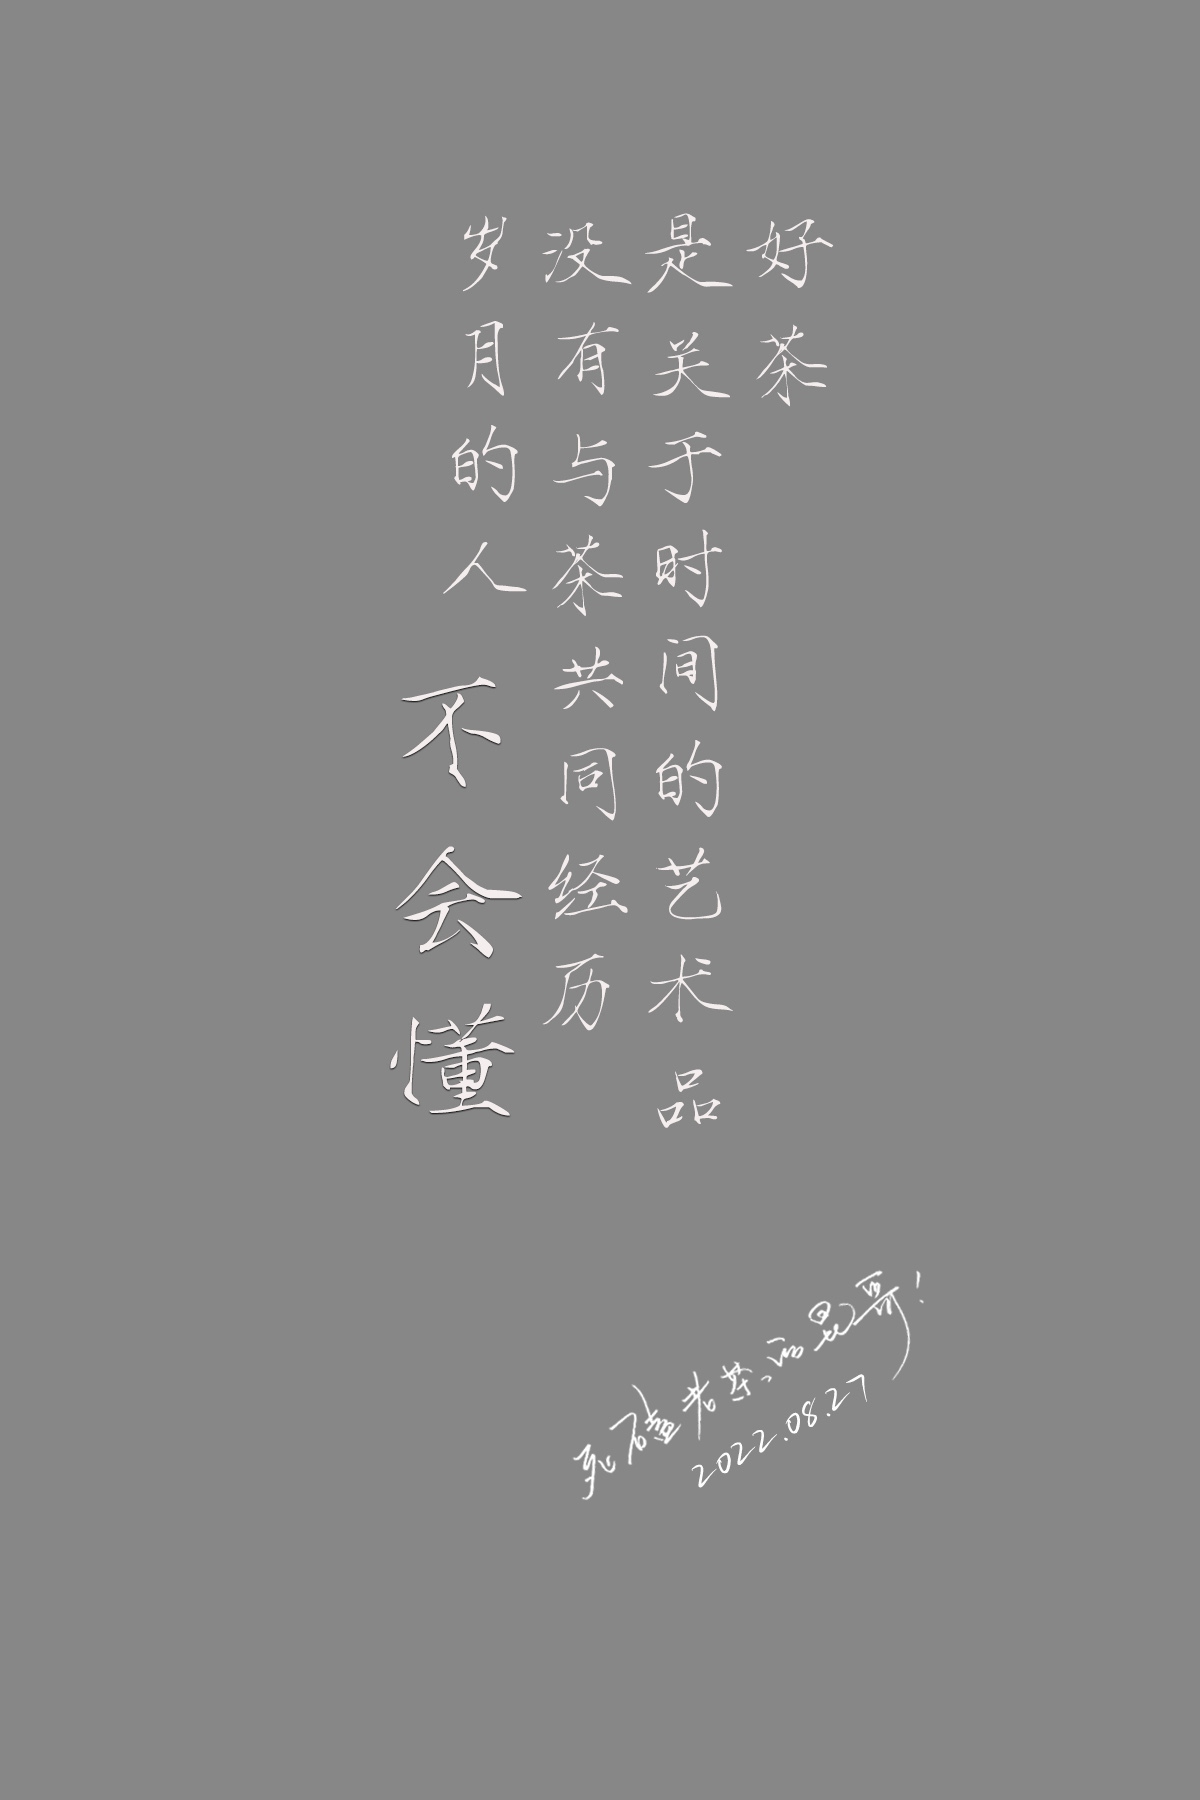 好茶
是关于时间的艺术品
没有与茶共同经历
岁月的人不会懂
死磕老茶、西昆哥！
2022.08.27